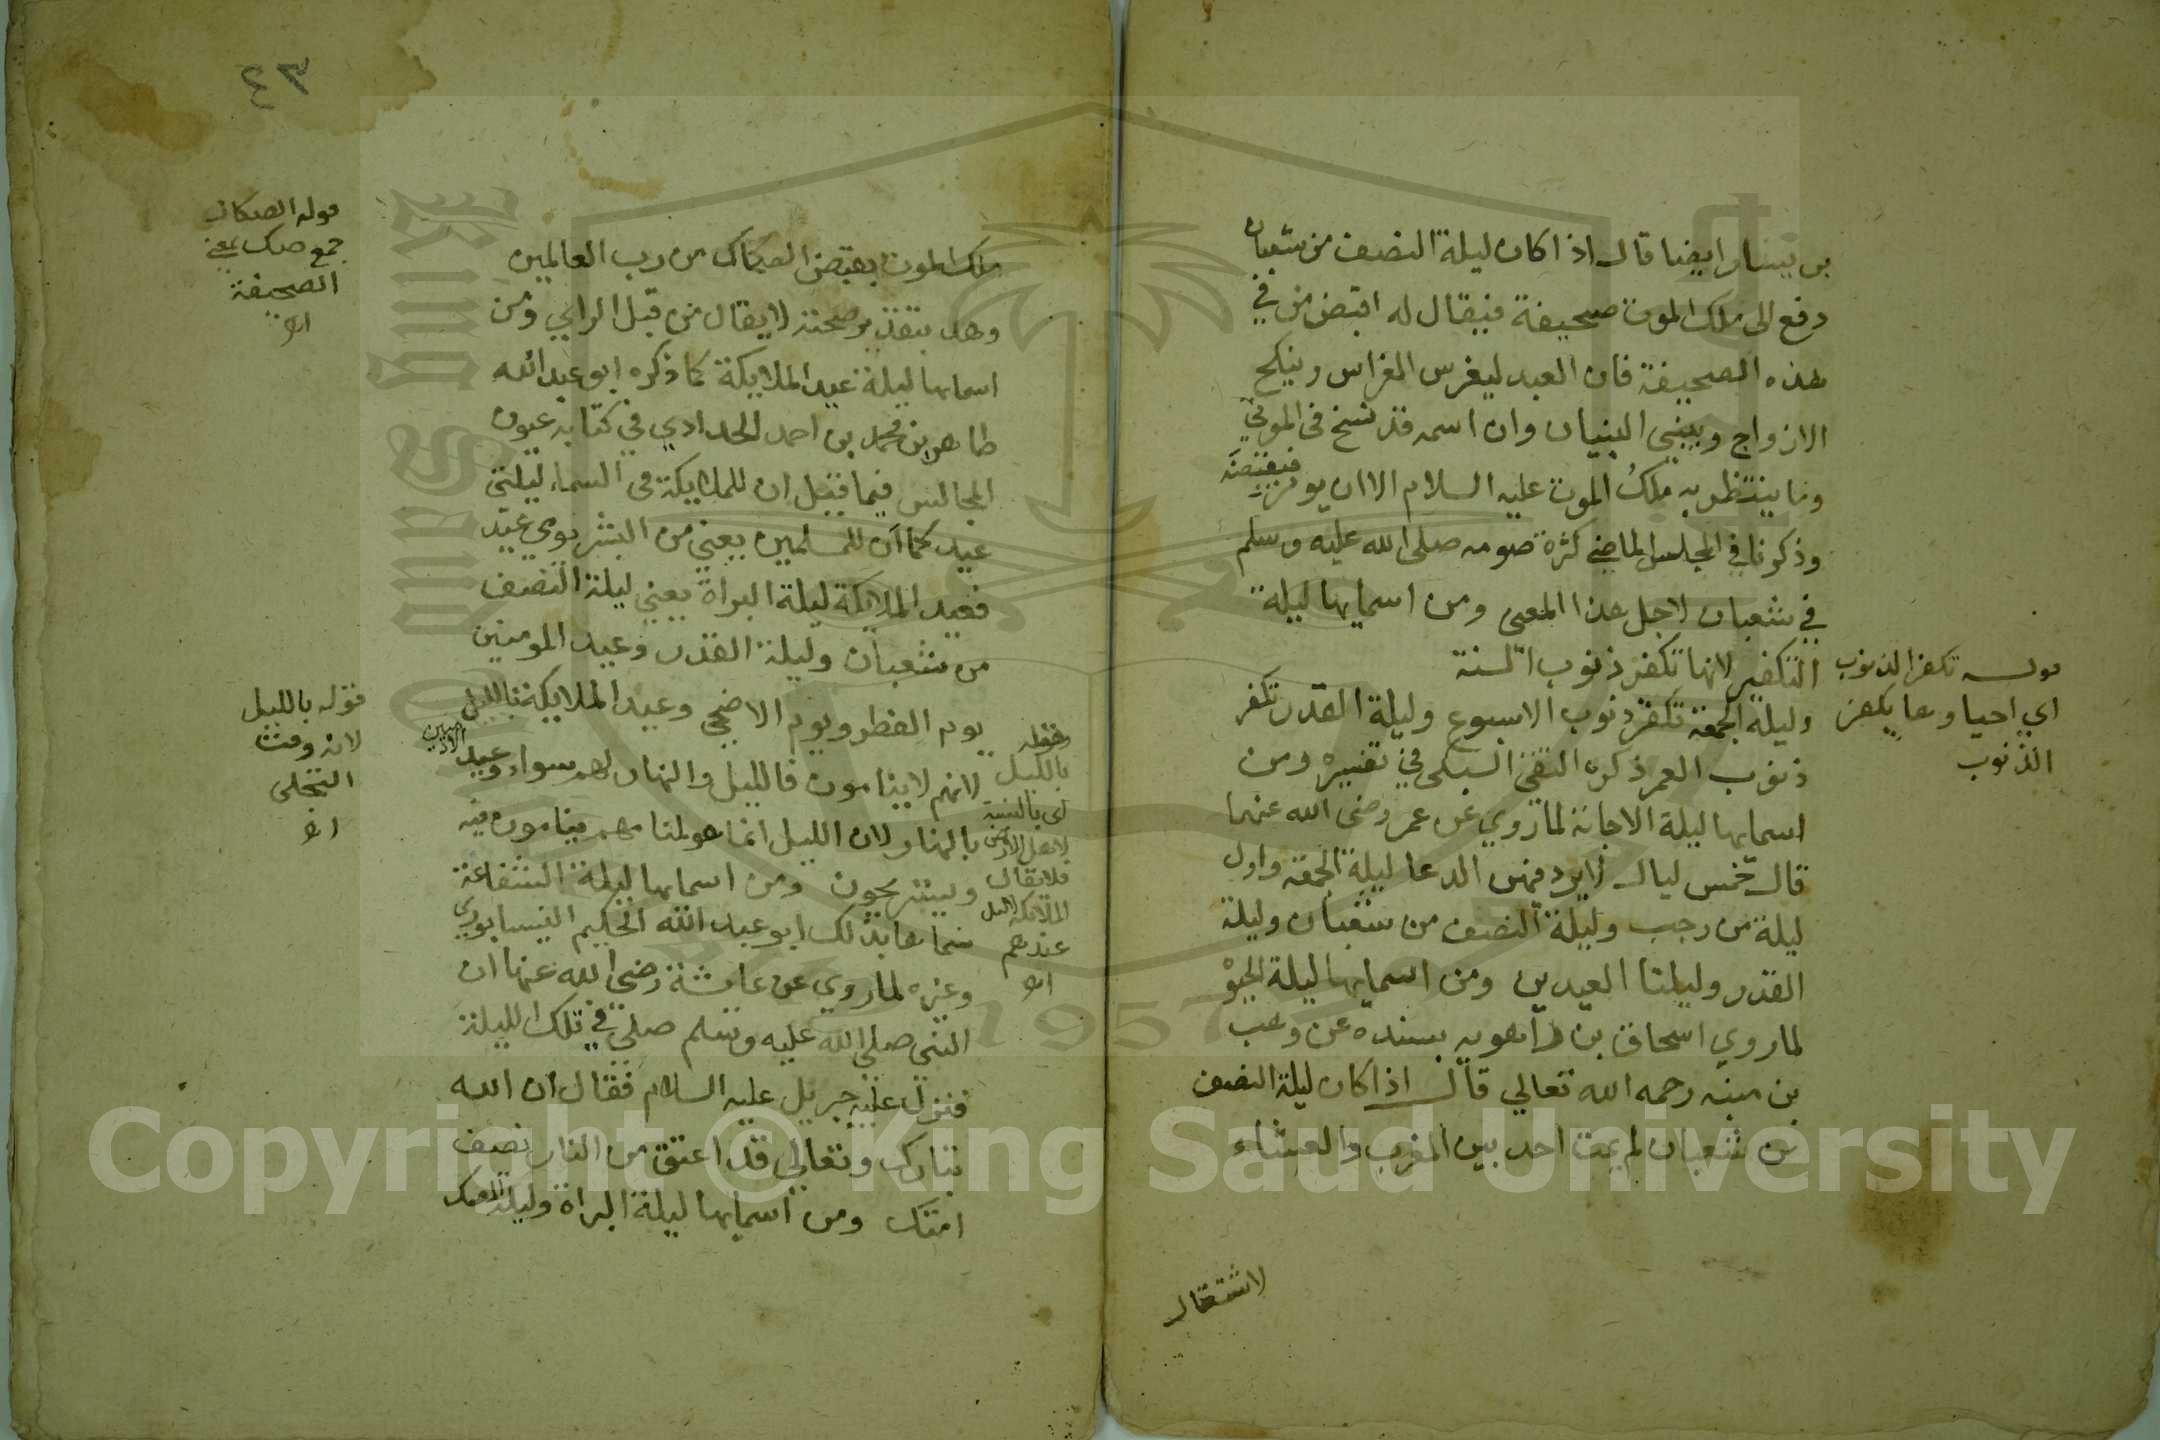 بن يسار ايضا قال اذا كان ليلة النصف من شعبان
دفع الى ملك الموت صحيفة فيقال له اقبض من في
هذه الصحيفة فان العبد ليغرس الغراس وينكح
الازواج ويبني البنيان وان اسمه قد نسخ في الموتى
وما ينتظر به ملك الموت عليه السلام الا ان يومر فيقبضه
وذكرنا في المجلس الماضي كثرة صومه صلى الله عليه وسلم
في شعبان لاجل هذا المعنى ومن اسمايها ليلة
التكفير لانها تكفر ذنوب السنة
وليلة الجمعة تكفر ذنوب الاسبوع وليلة القدر تكفر
ذنوب العمر ذكره التقى السبكى في تفسيره ومن
اسمايها ليلة الاجابة لما روي عن عمر رضى الله عنهما
قال خمس ليال لا يرد فيهن الدعا ليلة الجمعة واول
ليلة من رجب وليلة النصف من شعبان وليلة
القدر وليلتا العيدين ومن اسمايها ليلة الحيوة
لما روي اسحاق بن راهويه بسنده عن وهب
بن منبه رحمه الله تعالي قال اذا كان ليلة النصف
من شعبان لم يمت احد بين المغرب والعشاء
لاشتغال
قوله تكفر الذنوب
اي احياوها يكفر
الذنوب
٤٣
ملك الموت بقبض الصكاك من رب العالمين
وهذا بتقدير صحته لا يقال من قبل الراي ومن
اسمايها ليلة عيد الملايكة كما ذكره ابو عبد الله
طاهر بن محمد بن احمد الحدادي في كتابه عيون
المجالس فيما قيل ان للملايكة فى السماء ليلتي
عيد كما ان للمسلمين يعني من البشر يومي عيد
فعيد الملايكة ليلة البراة يعني ليلة النصف
من شعبان وليلة القدر وعيد المومنين
يوم الفطر ويوم الاضحي وعيد الملايكة بالليل
لانهم لا ينامون فالليل والنهار لهم سواء وعيد الادميين
بالنهار ولان الليل انما هو لمنامهم ينامون فيه
ويستريحون ومن اسمايها ليلة الشفاعة
سماها بذلك ابو عبد الله الحكيم النيسابوري
وغيره لما روي عن عايشة رضى الله عنها ان
النبي صلى الله عليه وسلم صلى في تلك الليلة
فنزل عليه جبريل عليه السلام فقال ان الله
تبارك وتعالى قد اعتق من النار نصف
امتك ومن اسمايها ليلة البراة وليلة الصك
قوله الصكاك
جمع صك بمعني
الصحيفة
اه
قوله بالليل
لانه وقت
التجلى
اه
قوله
بالليل
اي بالنسبة
فلا يقال
عندهم
اه
Copyright © King Saud University
King Saud University
1957